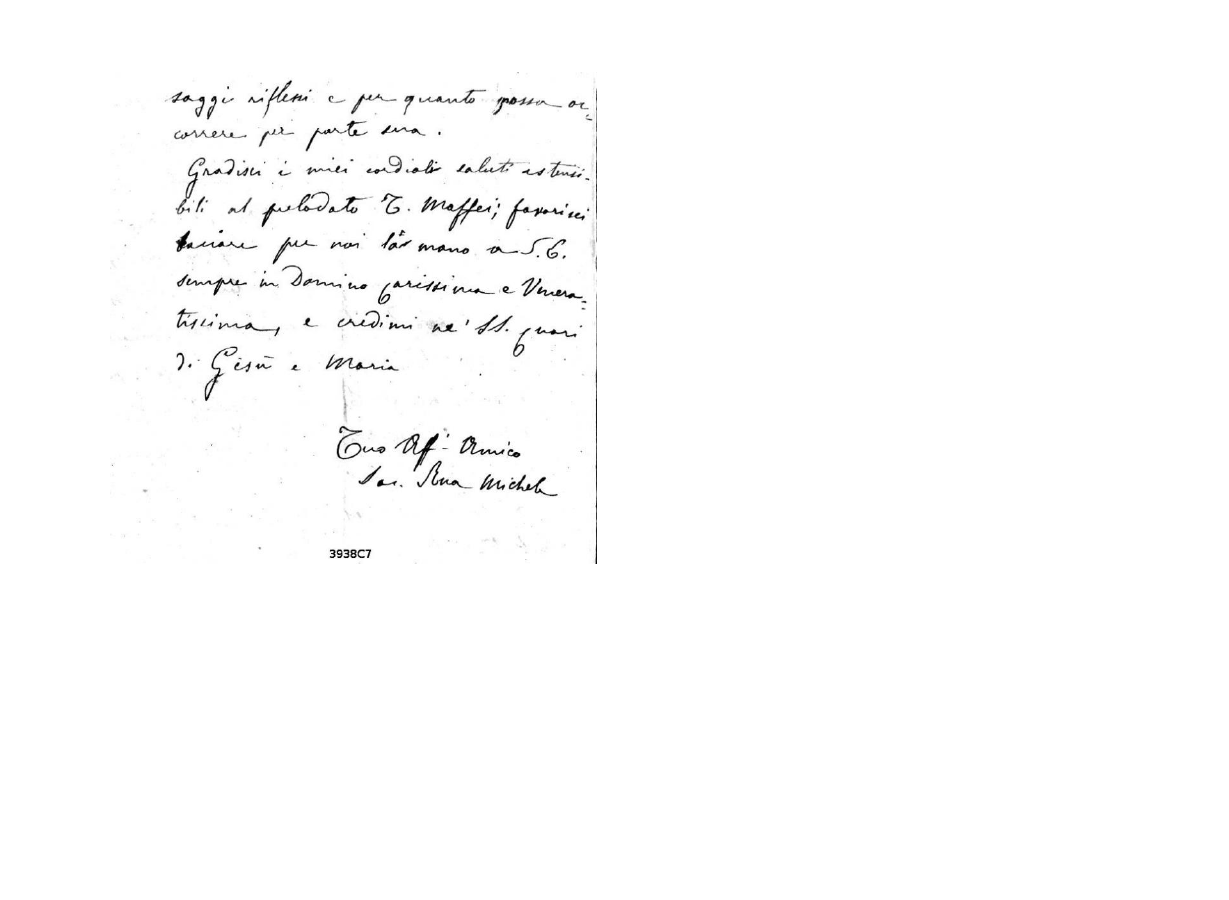 saggi riflessi e per quanto possa oc=
correre per parte sua.
Gradisci i miei cordiali saluti estensi-
bili al prelodato T. Maffei; favorisci
baciare per noi la mano a S. E.
sempre in Domino Carissima e Venera=
tissima, e credimi ne' SS. Cuori
di Gesù e Maria
Tuo Aff. Amico
Sac. Rua Michele
3938C7